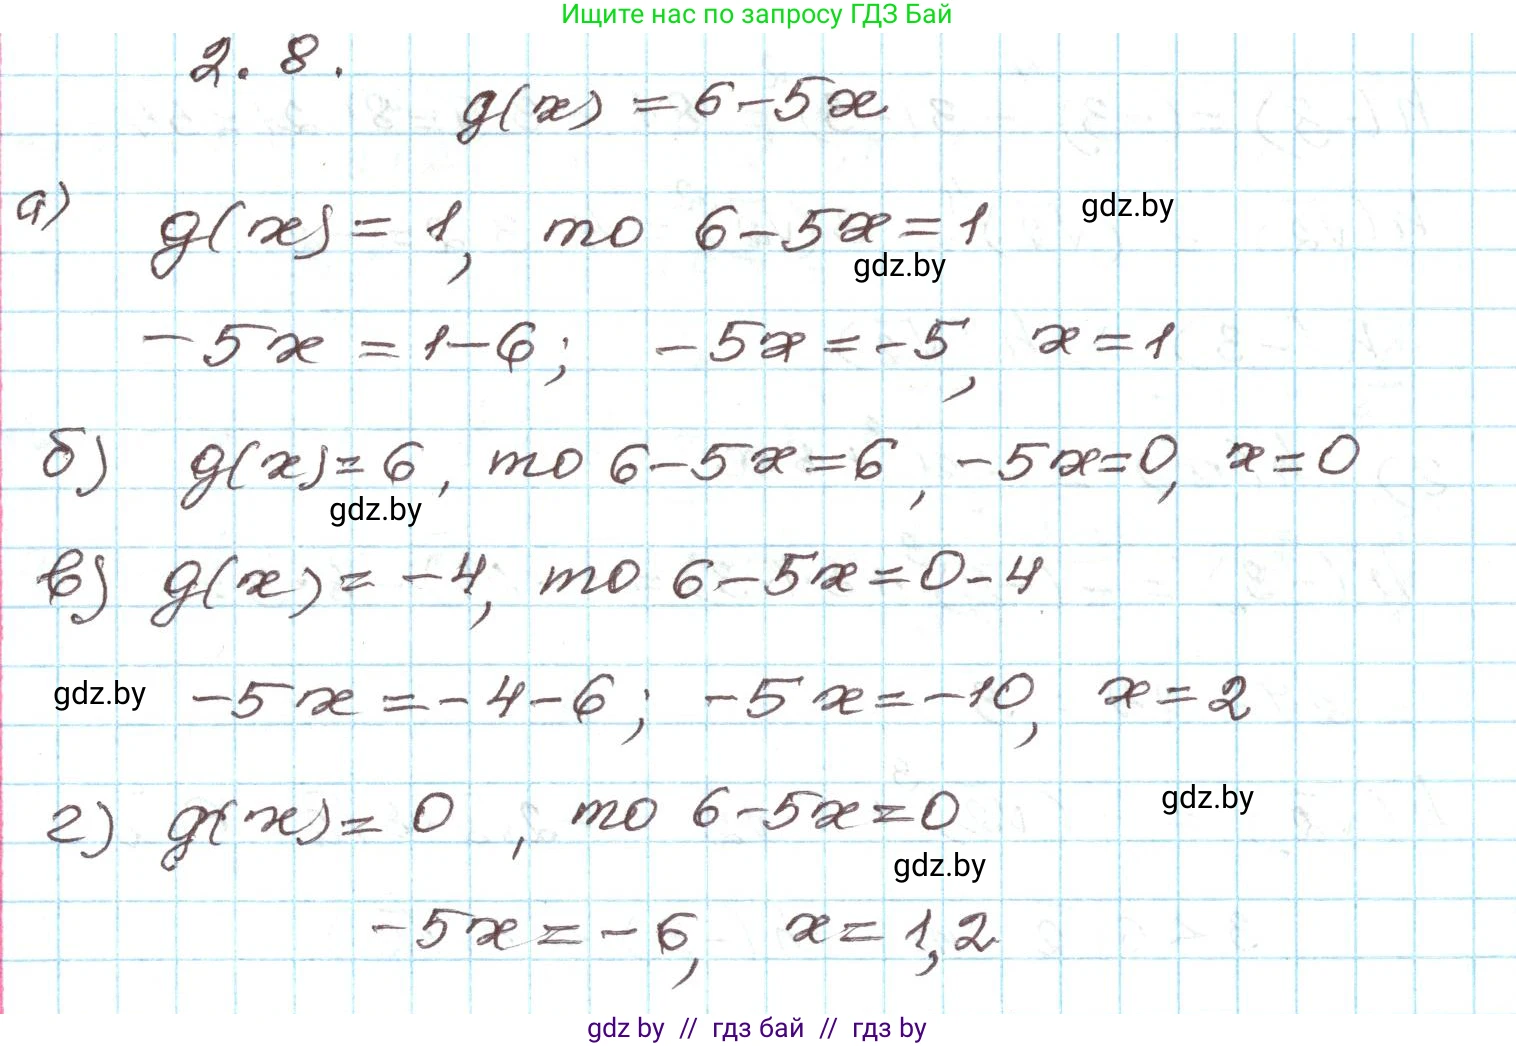 Ищите нас по запросу ГДЗ Бай
2.8.
g(x) = 6-5x
а) g(x) = 1, то 6-5x=1
gdz.by
gdz.by
-5x = 1-6; -5x=-5, x=1
б) g(x)=6, то 6-5x=6, -5x=0, x=0
gdz.by
в) g(x)=-4, то 6-5x=0-4
gdz.by
-5x=-4-6; -5x=-10, x=2
г) g(x)=0, то 6-5x=0
gdz.by
gdz.by
-5x=-6, x=1,2
gdz by // гдз бай // гдз by